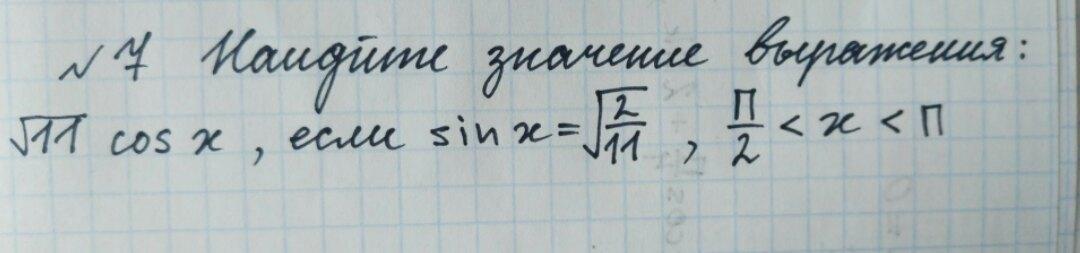 № 7 Найдите значение выражения:
√11 cos x, если sin x = √(2/11), π/2 < x < π